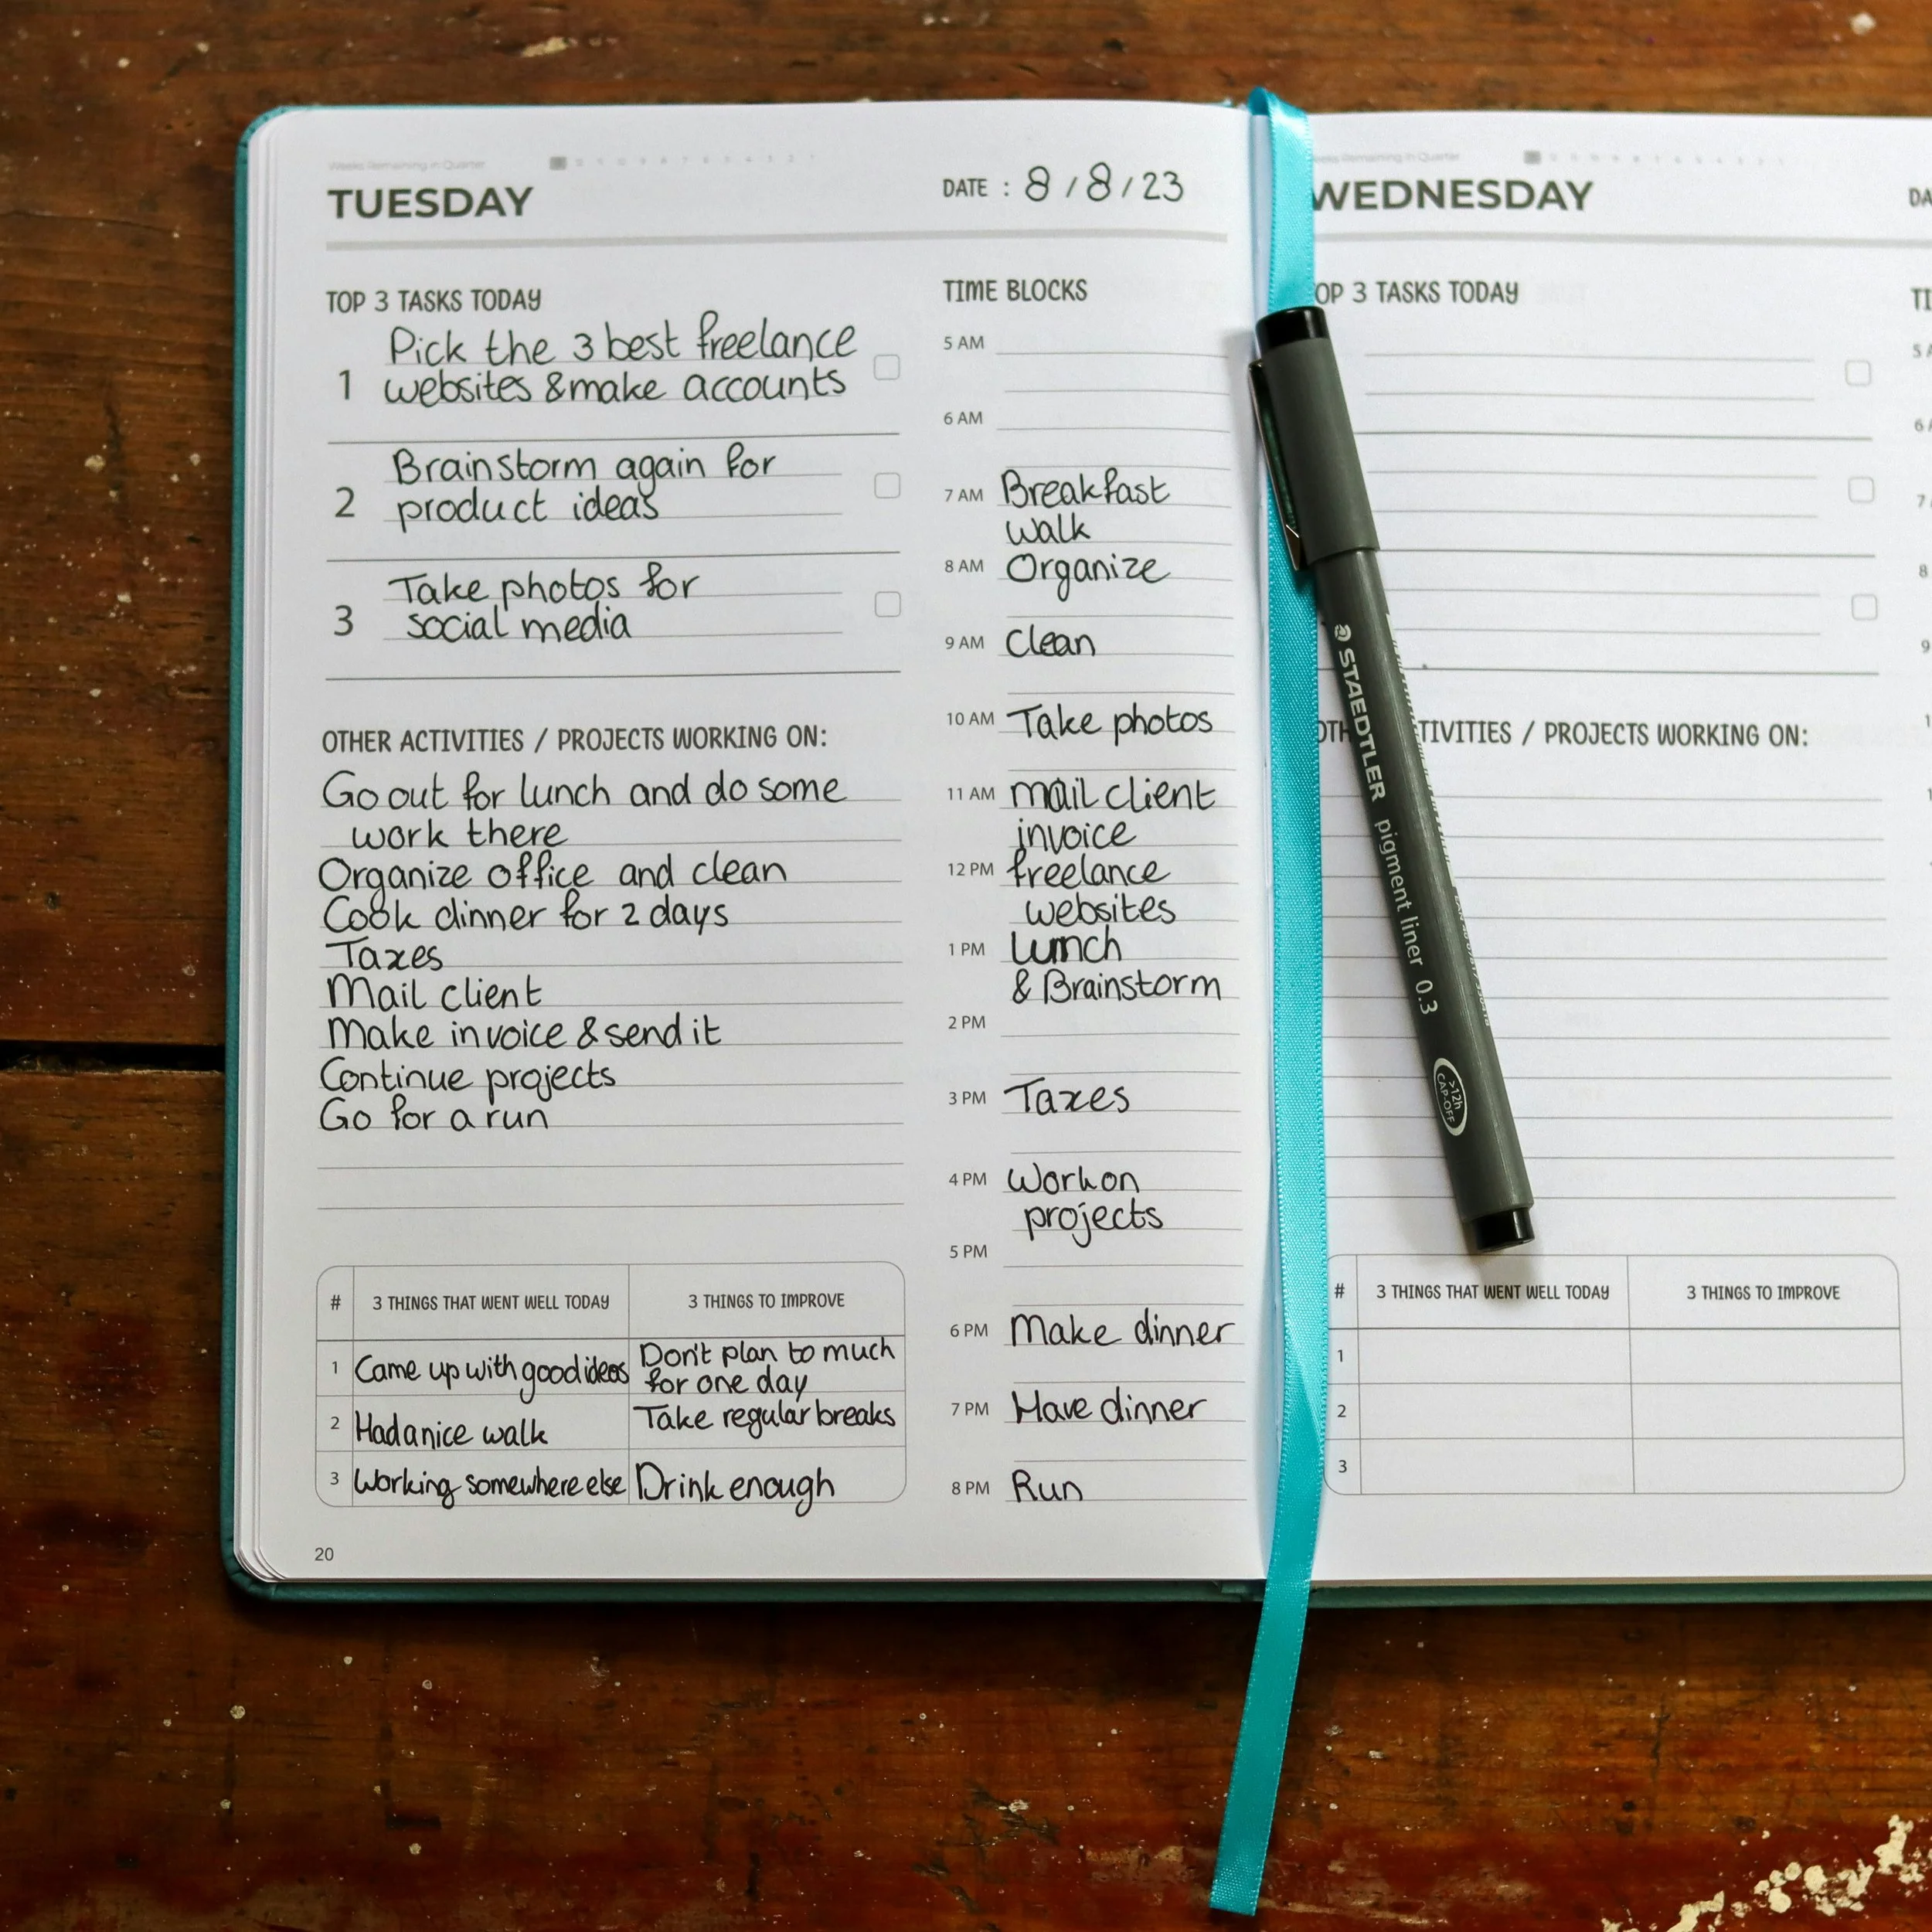 Weeks Remaining in Quarter
TUESDAY
DATE : 8/8/23
TOP 3 TASKS TODAY
1
Pick the 3 best freelance
websites & make accounts
2
Brainstorm again for
product ideas
3
Take photos for
social media
OTHER ACTIVITIES / PROJECTS WORKING ON:
Go out for lunch and do some
work there
Organize office and clean
Cook dinner for 2 days
Taxes
Mail client
Make invoice & send it
Continue projects
Go for a run
# 3 THINGS THAT WENT WELL TODAY 3 THINGS TO IMPROVE
1 Came up with good ideas Don't plan to much
for one day
2 Had a nice walk Take regular breaks
3 Working somewhere else Drink enough
20
TIME BLOCKS
5 AM
6 AM
7 AM Breakfast
walk
8 AM Organize
9 AM Clean
10 AM Take photos
11 AM mail client
invoice
12 PM freelance
websites
1 PM Lunch
& Brainstorm
2 PM
3 PM Taxes
4 PM Work on
projects
5 PM
6 PM Make dinner
7 PM Have dinner
8 PM Run
STAEDTLER pigment liner 0.3
>12h
CAP-OFF
Remaining in Quarter
WEDNESDAY
DA
OP 3 TASKS TODAY
TI
5 A
6 A
7
8
9
OTH TIVITIES / PROJECTS WORKING ON:
# 3 THINGS THAT WENT WELL TODAY 3 THINGS TO IMPROVE
1
2
3